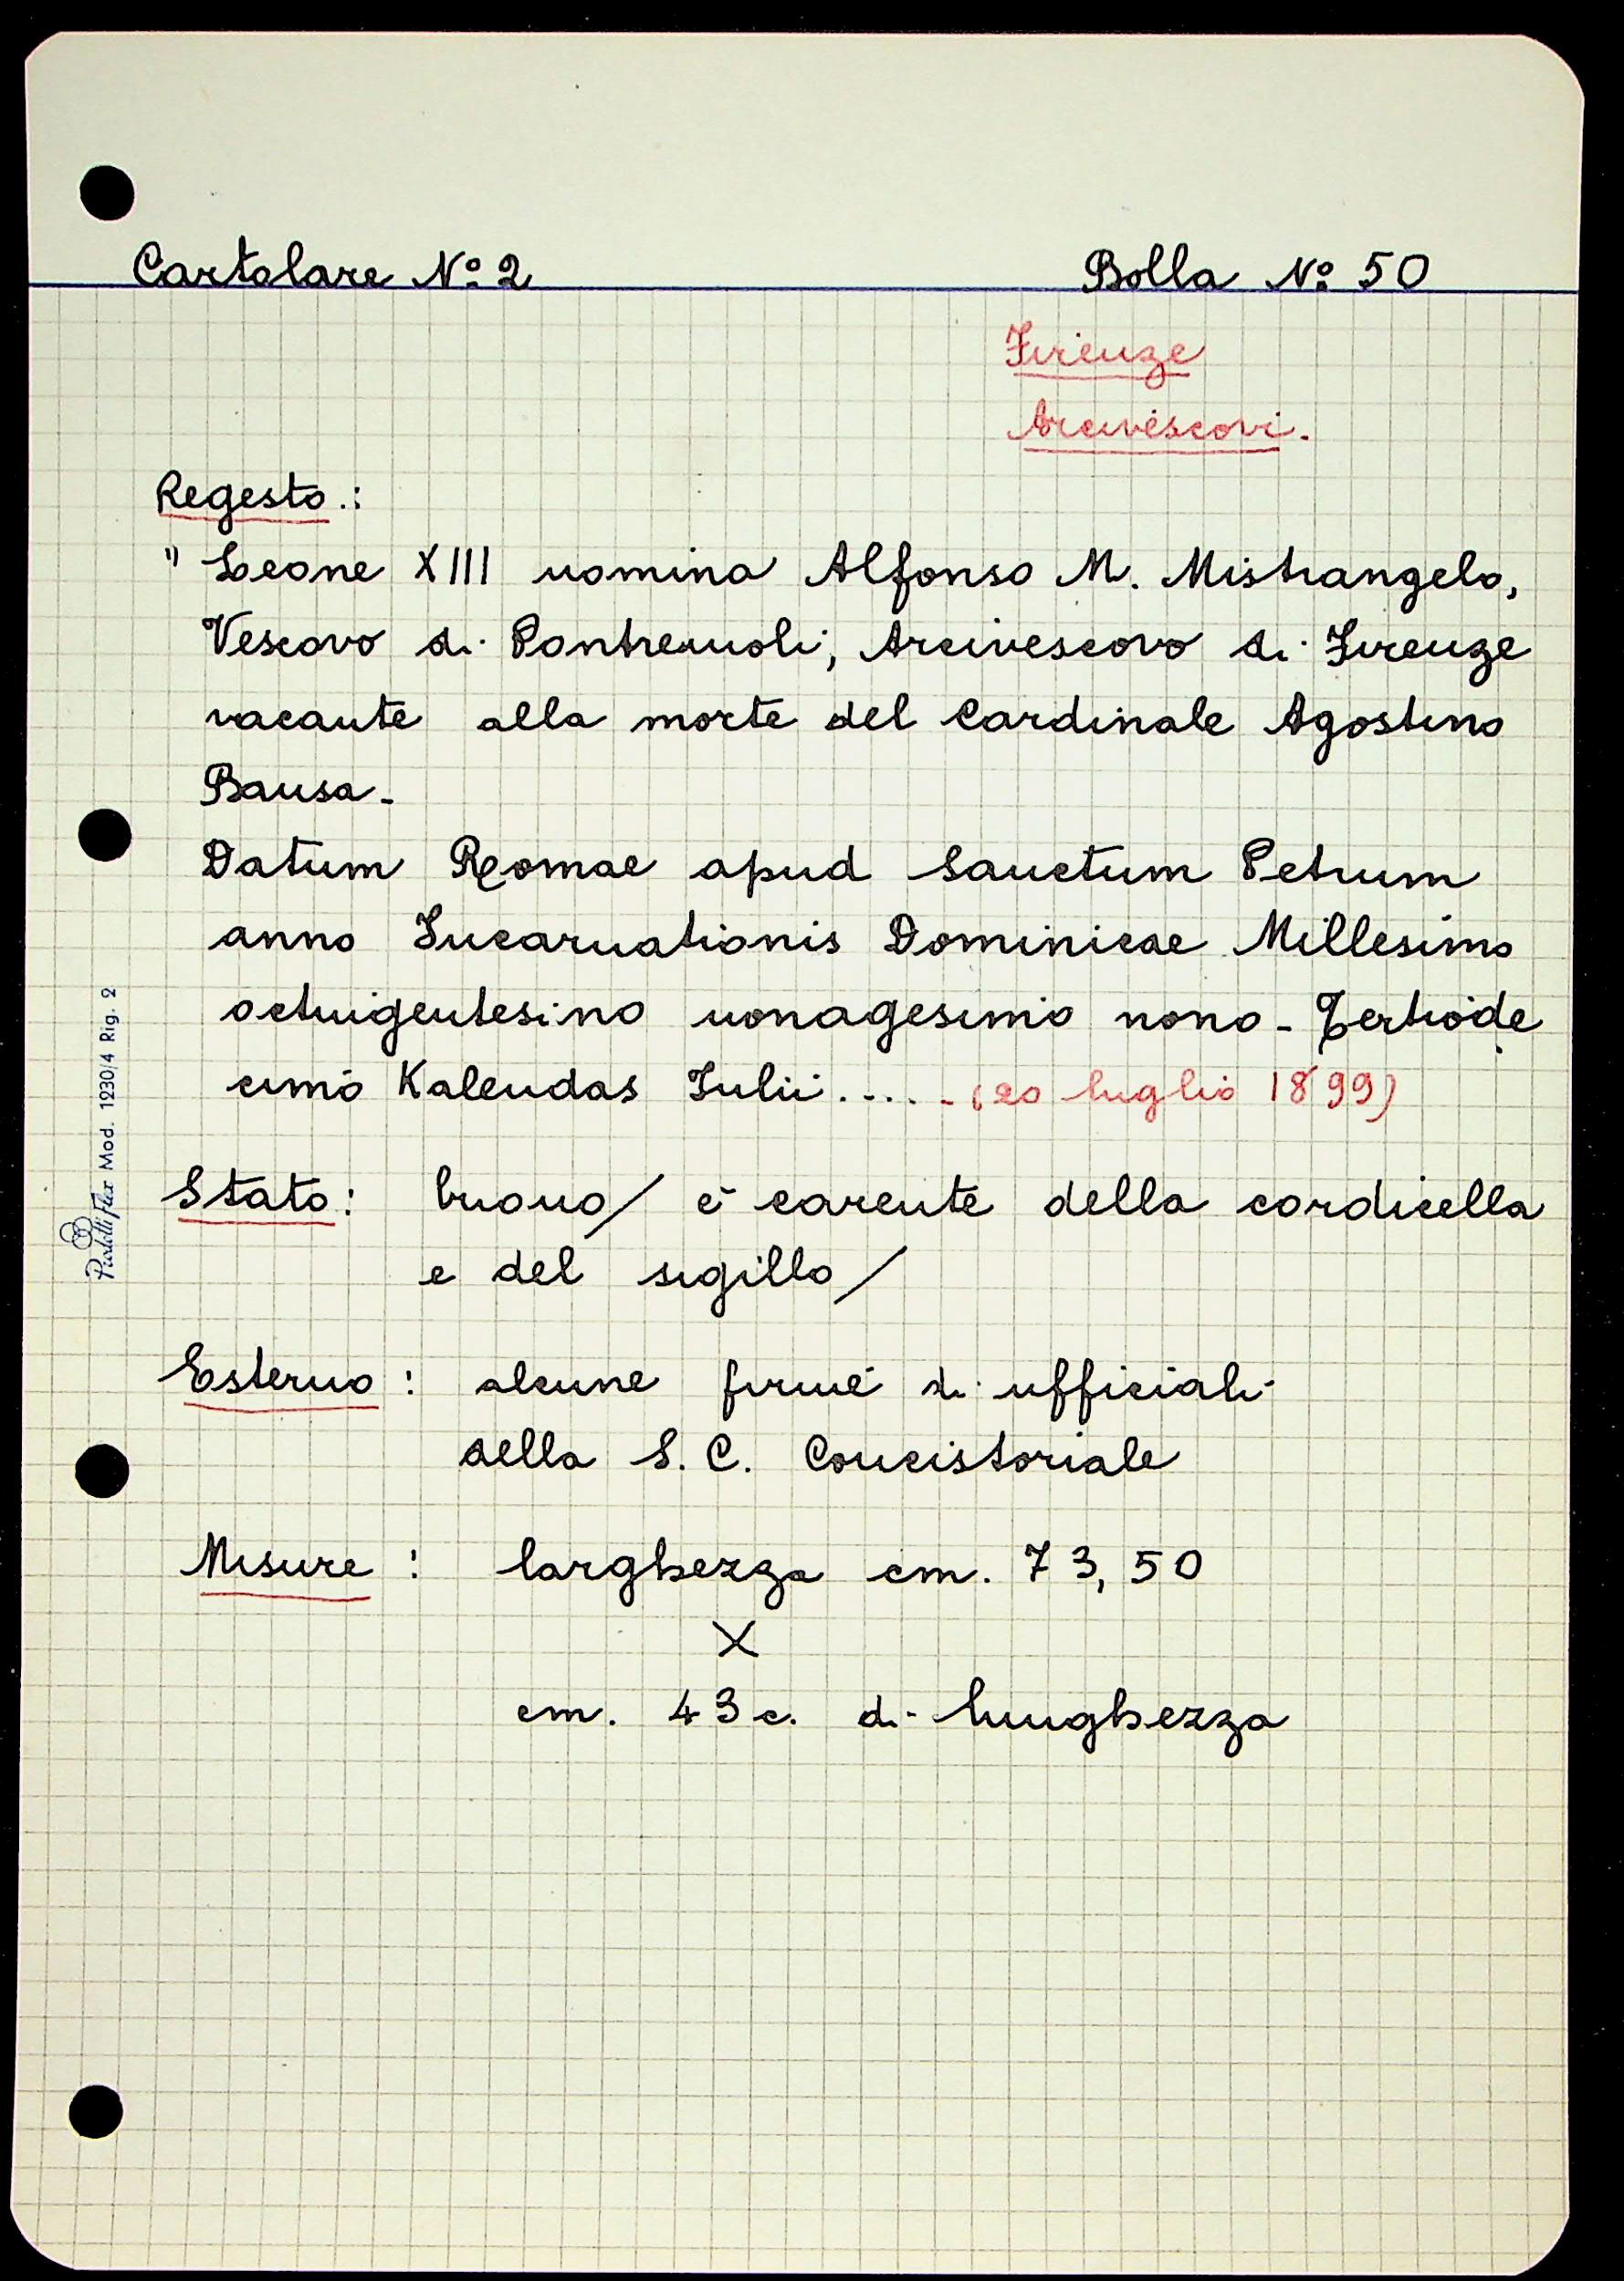 Cartolare Nº 2 Bolla Nº 50
Firenze
Arcivescovi.
Regesto.:
" Leone XIII nomina Alfonso M. Mistrangelo,
Vescovo di Pontremoli, Arcivescovo di Firenze
vacante alla morte del Cardinale Agostino
Bausa.
Datum Romae apud Sanctum Petrum
anno Incarnationis Dominicae Millesimo
octuigentesimo nonagesimo nono - Tertiode
cimo Kalendas Iulii..... (20 luglio 1899)
Stato: buono / è carente della cordicella
e del sigillo /
Esterno: alcune firme di ufficiali
della S. C. Concistoriale
Misure: larghezza cm. 73,50
X
cm. 43 c. di lunghezza
Mod. 1230/4 Rig. 2